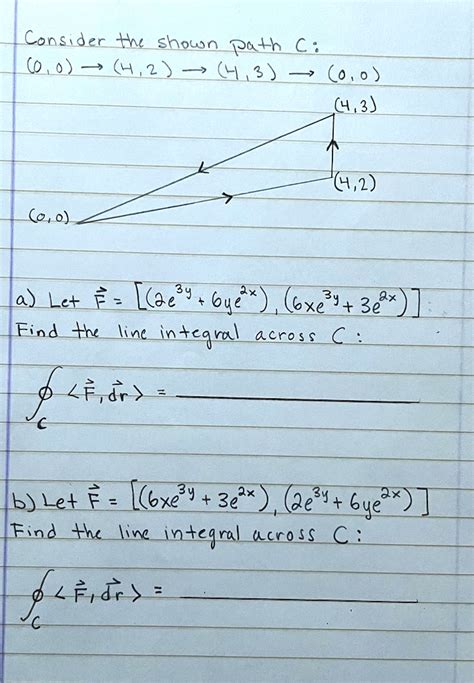 Consider the shown path C:
(0,0) → (4,2) → (4,3) → (0,0)
(4,3)
(4,2)
(0,0)
a) Let F⃗ = [(2e^{3y} + 6ye^{2x}), (6xe^{3y} + 3e^{2x})]
Find the line integral across C:
∮_C <F⃗, dr⃗> =
b) Let F⃗ = [(6xe^{3y} + 3e^{2x}), (2e^{3y} + 6ye^{2x})]
Find the line integral across C:
∮_C <F⃗, dr⃗> =